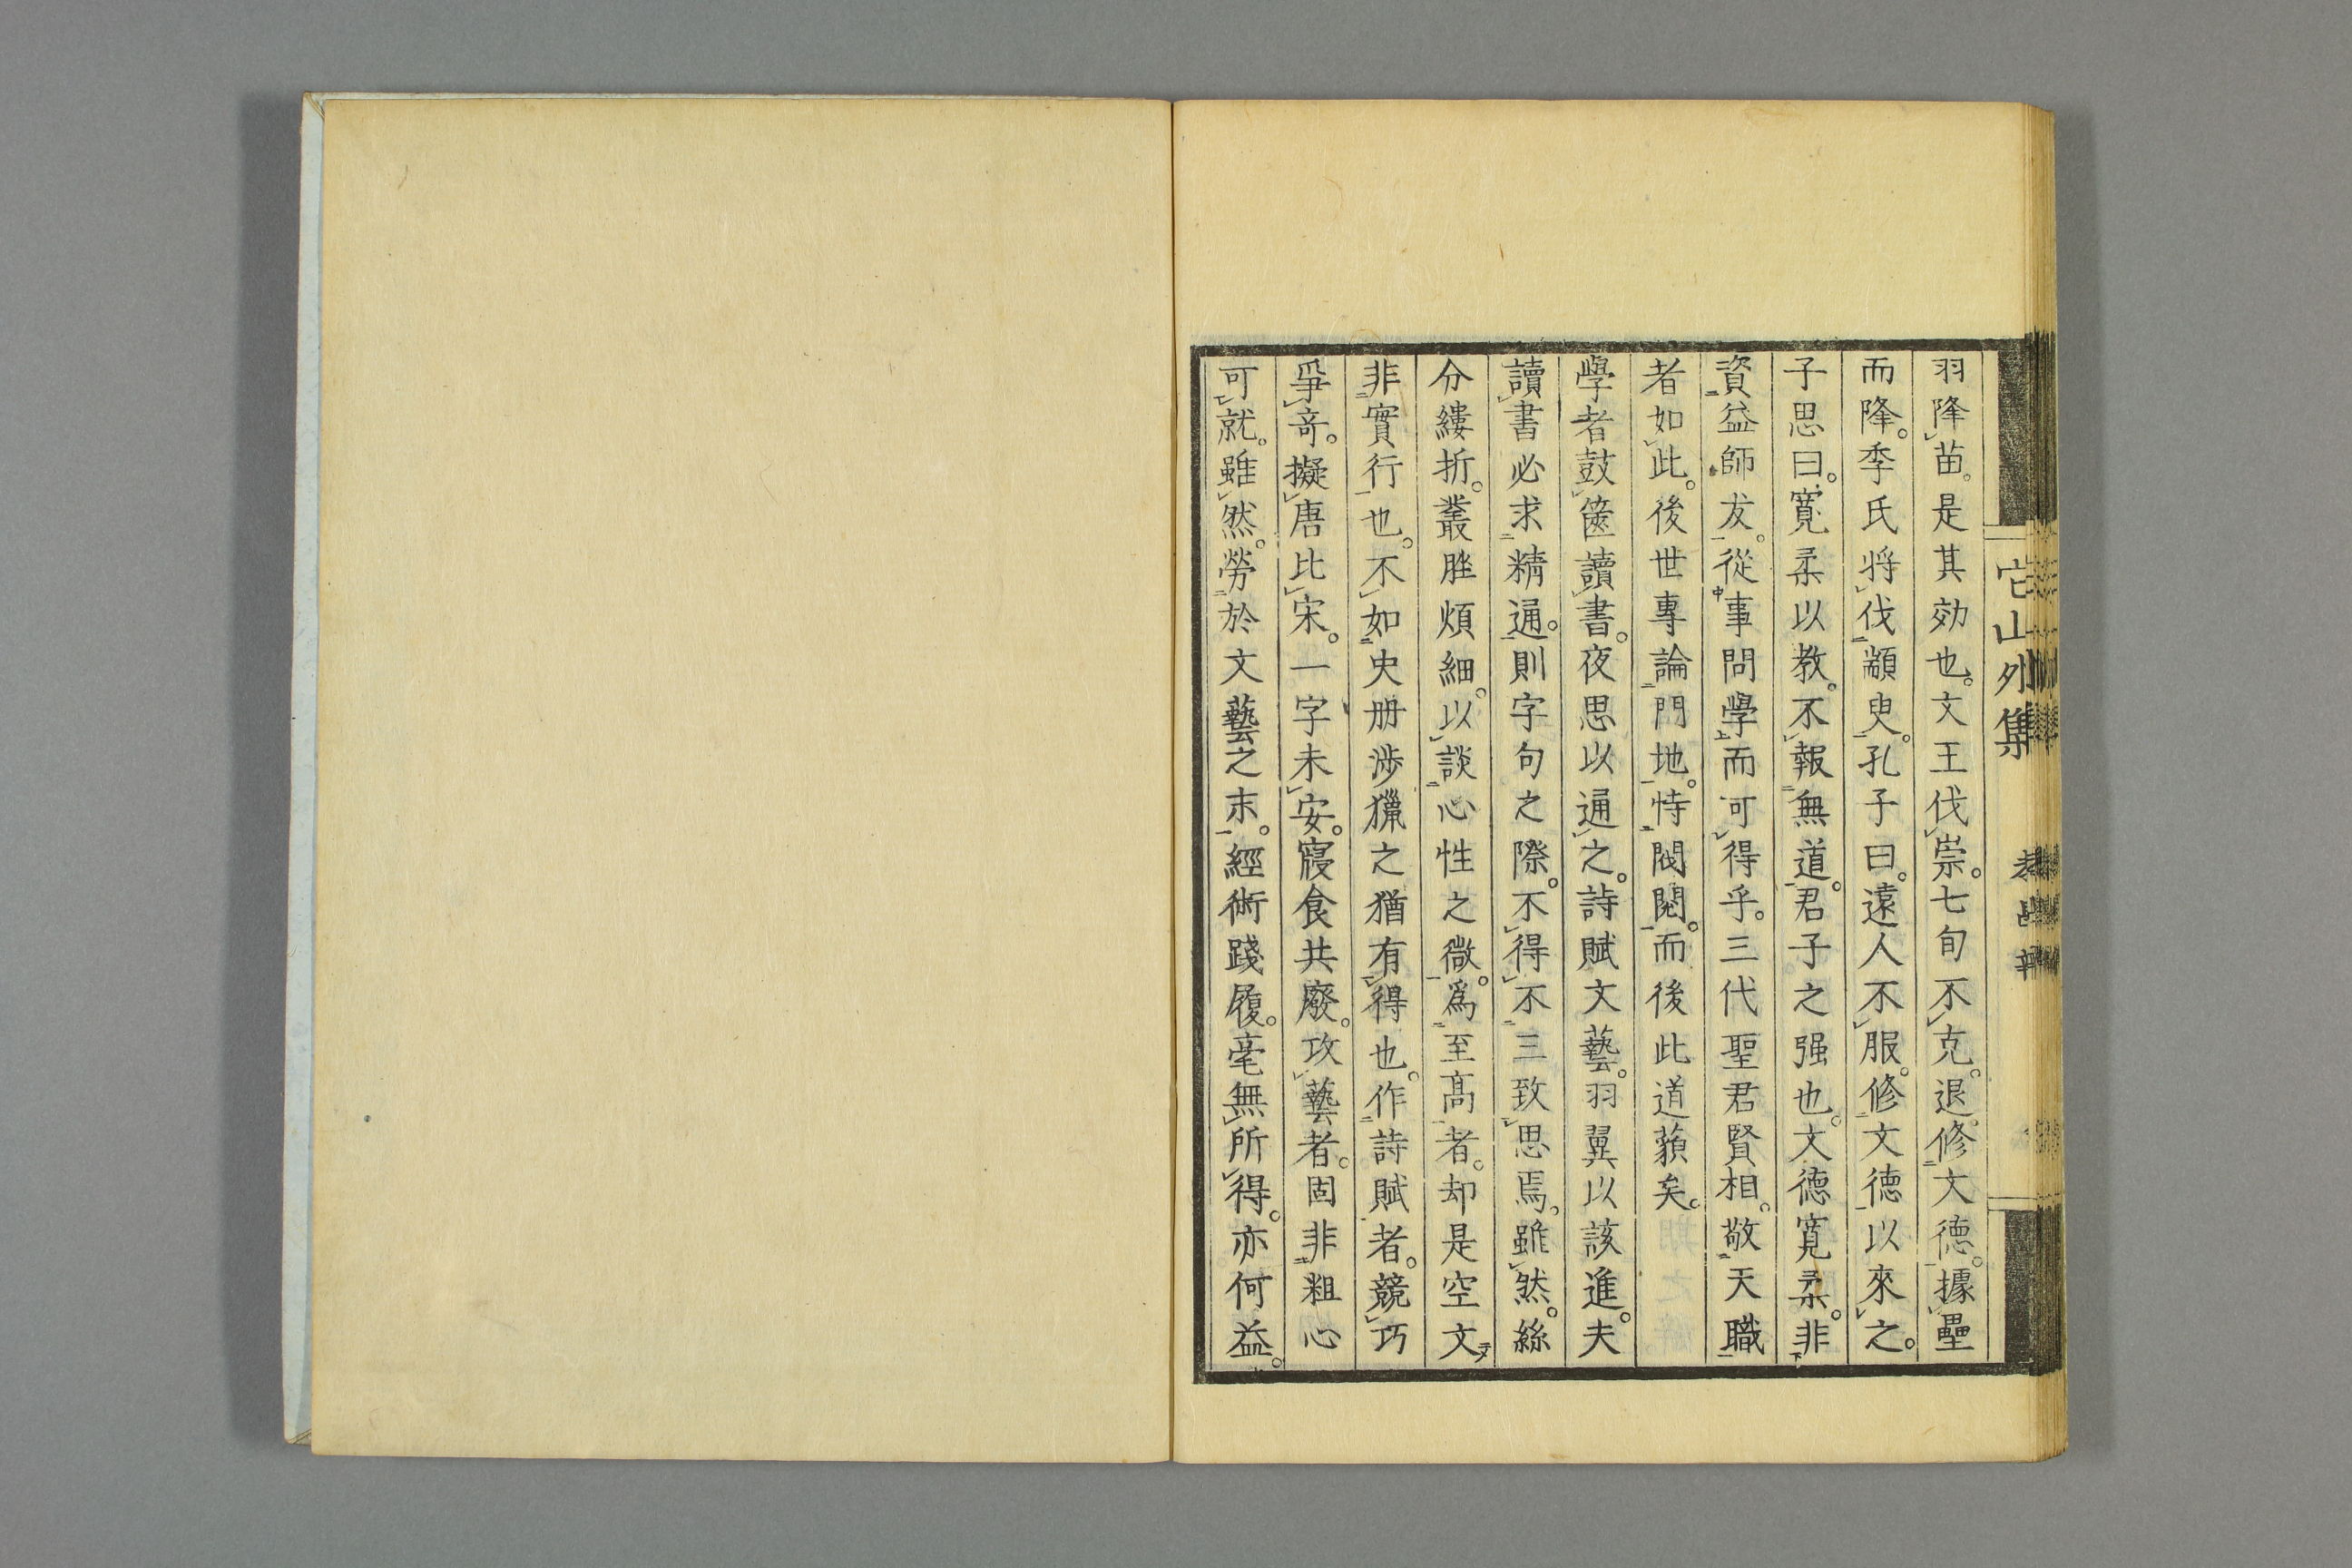 它山外集
羽降苗。是其効也。文王伐崇。七旬不克。退。修文德。據壘
而降。季氏將伐顓臾。孔子曰。遠人不服。修文德以來之。
子思曰。寬柔以教。不報無道。君子之强也。文德寬柔。非
資益師友。從事問學而可得乎。三代聖君賢相。敬天職
者如此。後世專論門地。恃閥閱。而後此道藐矣。
學者鼓篋讀書。夜思以通之。詩賦文藝。羽翼以該進。夫
讀書必求精通。則字句之際。不得不三致思焉。雖然。絲
分縷折。叢脞煩細。以談心性之微。爲至高者。却是空文
非實行也。不如史册涉獵之猶有得也。作詩賦者。競巧
爭奇。擬唐比宋。一字未安。寢食共廢。攻藝者。固非粗心
可就。雖然。勞於文藝之末。經術踐履。毫無所得。亦何益。